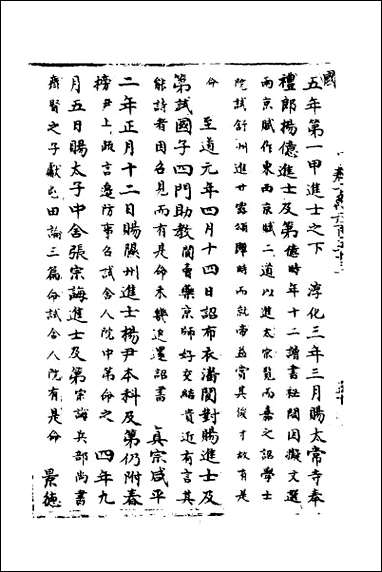 國
五年第一甲進士之下　淳化三年三月賜太常寺奉
禮郎楊億進士及第億時年十二讀書祕閣因擬文選
兩京賦作東西京賦二道以進太宗覽而嘉之詔學士
院試舒州進甘露頌賜時而就帝益賞其後才故有是
命　至道元年四月十四日詔布衣潘閬對賜進士及
第試國子四門助教閬賣藥京師好交結貴近有言其
能詩者因召見而有是命未幾追還詔書　真宗咸平
二年正月十二日賜　州進士楊尹本科及第仍附春
榜尹上　政言邊防事召試舍人院中第命之　四年九
月五日賜太子中舍張宗誨進士及第宗誨兵部尚書
齊賢之子獻屯田論三篇命試舍人院有是命　景德